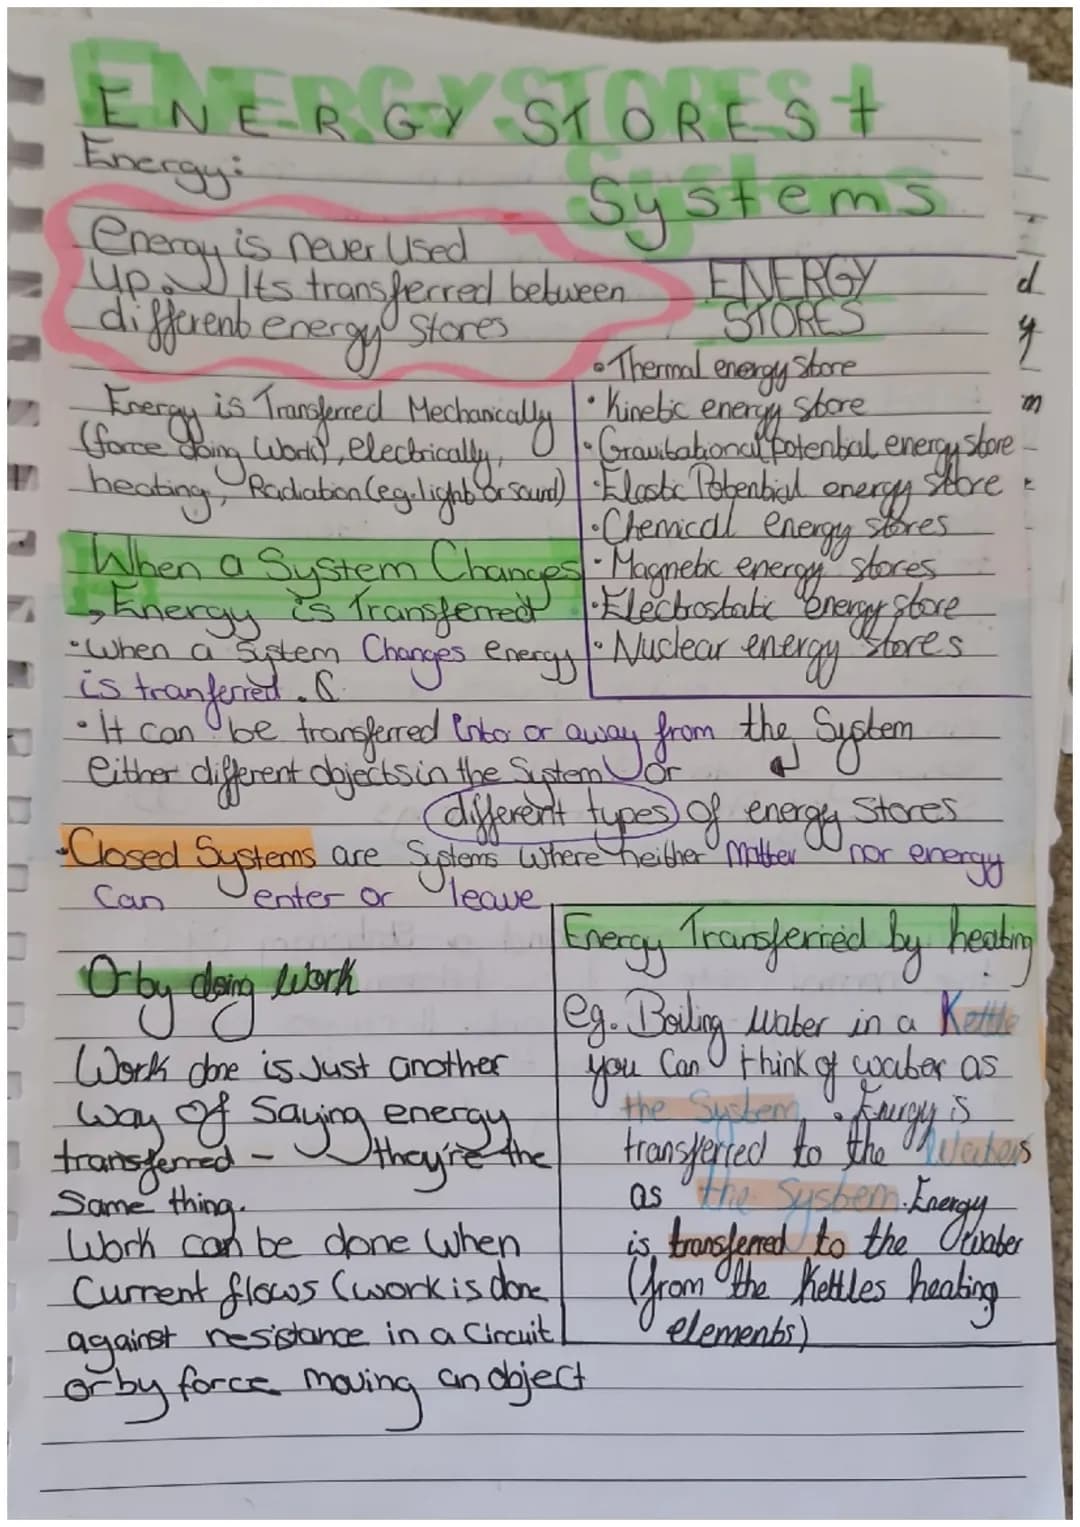 ENERGY STORES +
Systems
Energy:
Energy is never Used
up. Its transferred between
different energy Stores
Energy is Transferred Mechanically
(force doing work), electrically,
heating, Radiation (eg. light or sound)
ENERGY
STORES
• Thermal energy store
• Kinetic energy store
• Gravitational potential energy store
• Elastic Potential energy store
• Chemical energy stores
• Magnetic energy stores
• Electrostatic energy store
• Nuclear energy stores
When a System Changes
→ Energy is Transferred
• When a System Changes energy
is tranferred.
• It can be transferred into or away from the System
either different objects in the System or
different types of energy Stores
• Closed Systems are Systems where neither matter nor energy
can enter or leave
Or by doing work
Work done is Just another
way of Saying energy
transferred - they're the
Same thing.
Work can be done when
Current flows (work is done
against resistance in a Circuit
or by force moving an object
Energy Transferred by heating
eg. Boiling water in a Kettle
you Can think of water as
the System. Energy is
transferred to the Waters
as the System. Energy
is transferred to the water
(from the Kettles heating
elements)
d
y
m